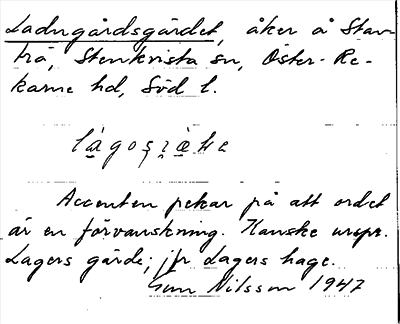 Ladugårdsgärdet, åker å Stav-
trå, Stenkvista sn, Öster-Re-
karne hd, Söd l.
Accenten pekar på att ordet
är en förvanskning. Kanske urspr.
Lagers gärde; jfr Lagers hage.
Nilsson 1947